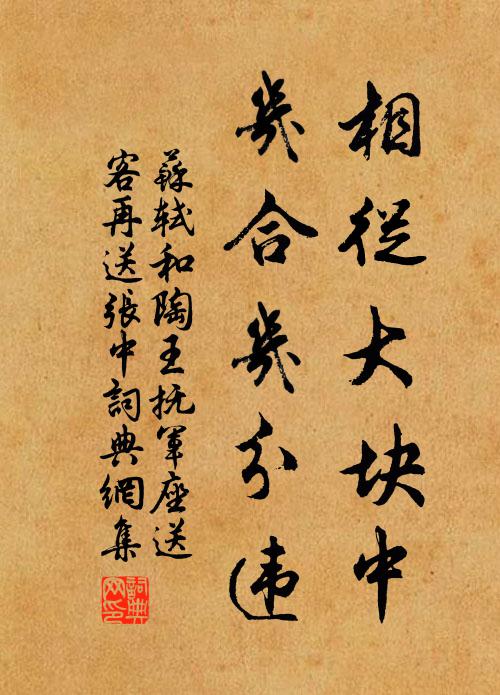 相從大块中
幾合幾分违
蘇轼和陶王抚軍座送
客再送張中詞典網集
詞典网印